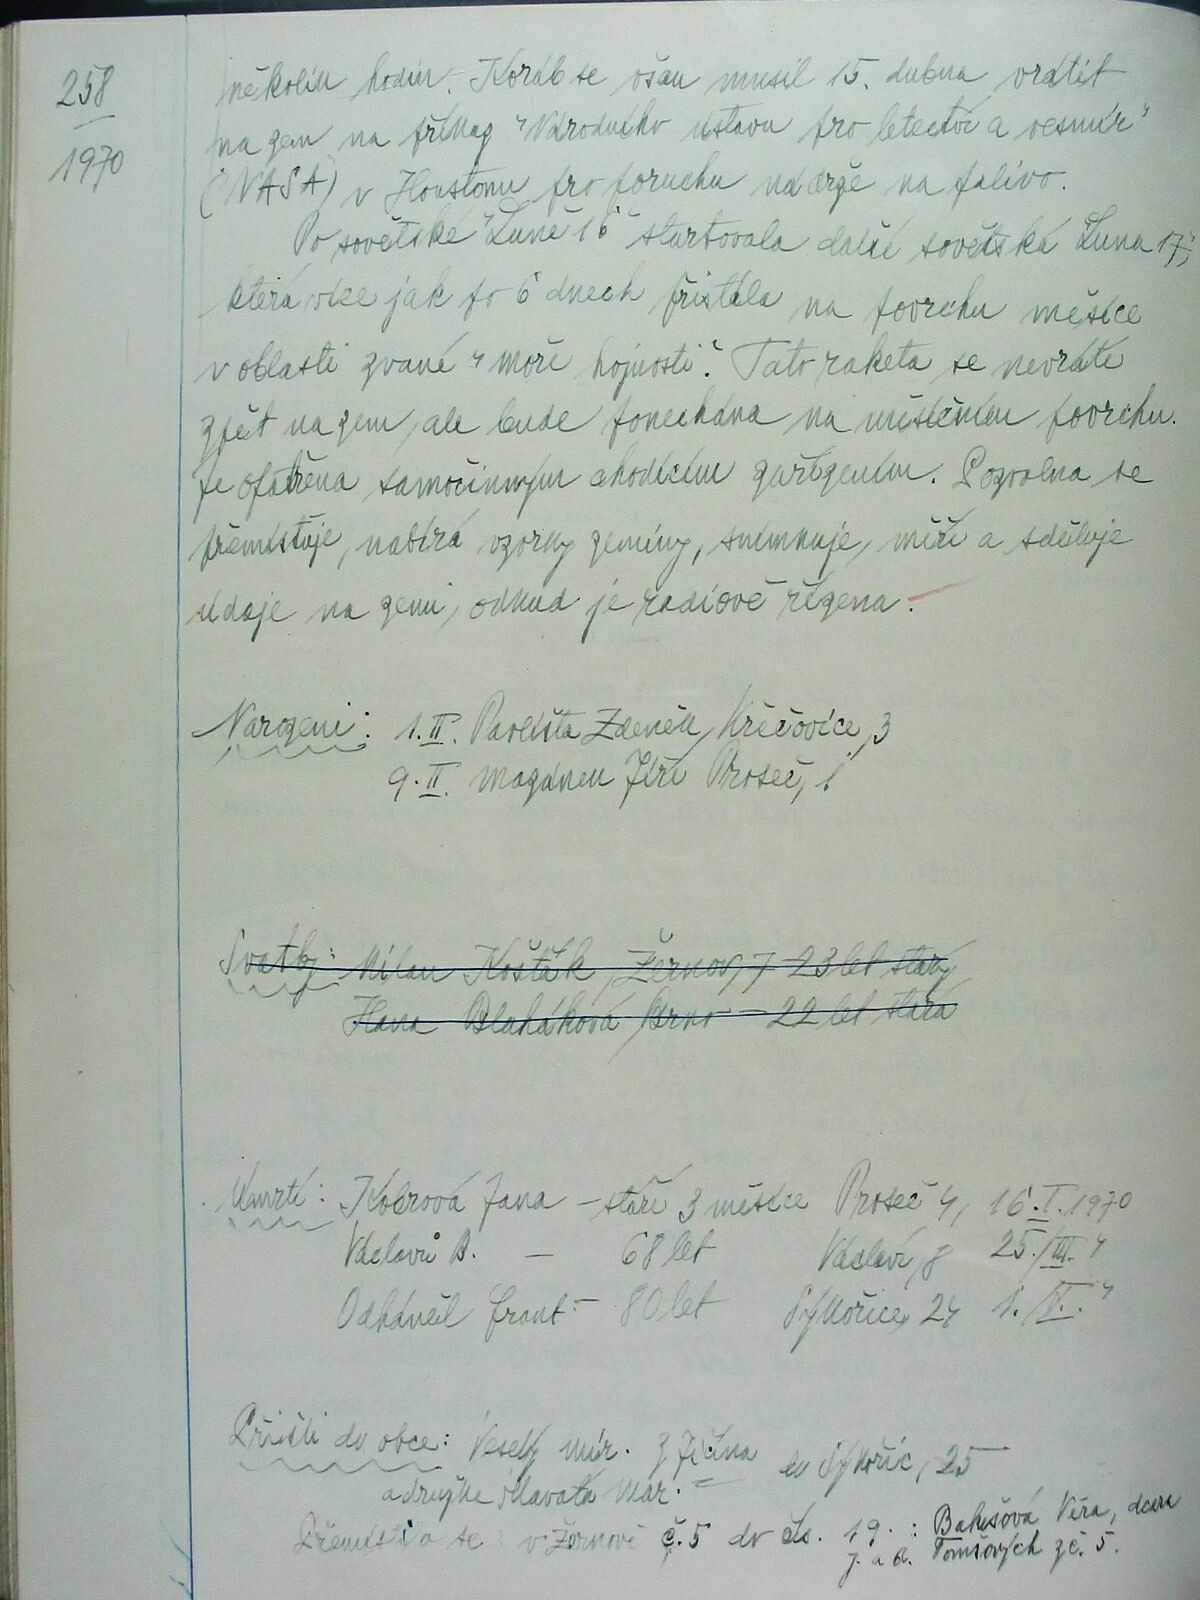 258
1970
několik hodin. Koráb se ošau musil 15. dubna vrátit
na zem na příkaz "Národního ústavu pro letectví a vesmír"
(NASA) v Houstonu pro poruchu nádrže na palivo.
Po sovětské "Luně 16" startovala další sovětská Luna 17,
která více jak po 6 dnech přistála na povrchu měsíce
v oblasti zvané "moře hojnosti". Tato raketa se nevrátí
zpět na zem, ale bude ponechána na měsíčním povrchu.
Je opatřena samočinným chodícím zařízením. Pozvolna se
přemisťuje, nabírá vzorky zeminy, snímkuje, měří a sděluje
údaje na zemi, odkud je radiově řízena.
Narozeni: 1.II. Pavlišta Zdeněk, Křečovice, 3
9.II. Mazánek Jiří Proseč, 1
Svatby: Milan Košťák, Žernov, 7 23 let starý
Hana Blaháková, Brno - 22 let stará
Úmrtí: Kobrová Jana - stáří 3 měsíce Proseč 4, 16.I.1970
Václavů B. - 68 let Václaví, 8 25./III. "
Odháněl Frant - 80 let Sýkořice, 24 1./V. "
Přišli do obce: Veselý Mir. z Jičína do Sýkořic, 25
a družke Hlavatá Mar. =
Přemístila se v Žernově č. 5 do čs. 19. : Bakešová Věra, dcera
J. a A. Tomšových z č. 5.